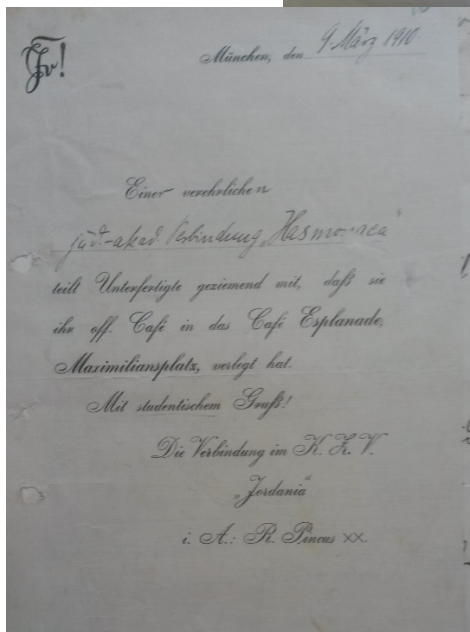 München, den 9. März 1910
Einer verehrlichen
jüd.-akad. Verbindung „Hasmonaea“
teilt Unterfertigte geziemend mit, daß sie
ihr off. Café in das Café Esplanade,
Maximiliansplatz, verlegt hat.
Mit studentischem Gruß!
Die Verbindung im K. Z. V.
„Jordania“
i. A.: R. Pincus XX.